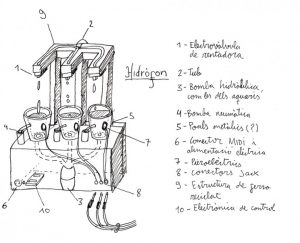 9
2
1
Hidrògon
3
4
5
7
6
10
3
8
1 - Electrovàlvula de rentadora
2 - Tub
3 - Bomba hidràulica, com les dels aquaris
4 - Bomba neumàtica
5 - Poals metàlics (?)
6 - Conector MIDI i alimentació elèctrica
7 - Piezoelèctrics
8 - Conectors Jaux
9 - Estructura de ferro reciclat
10 - Electrònica de control